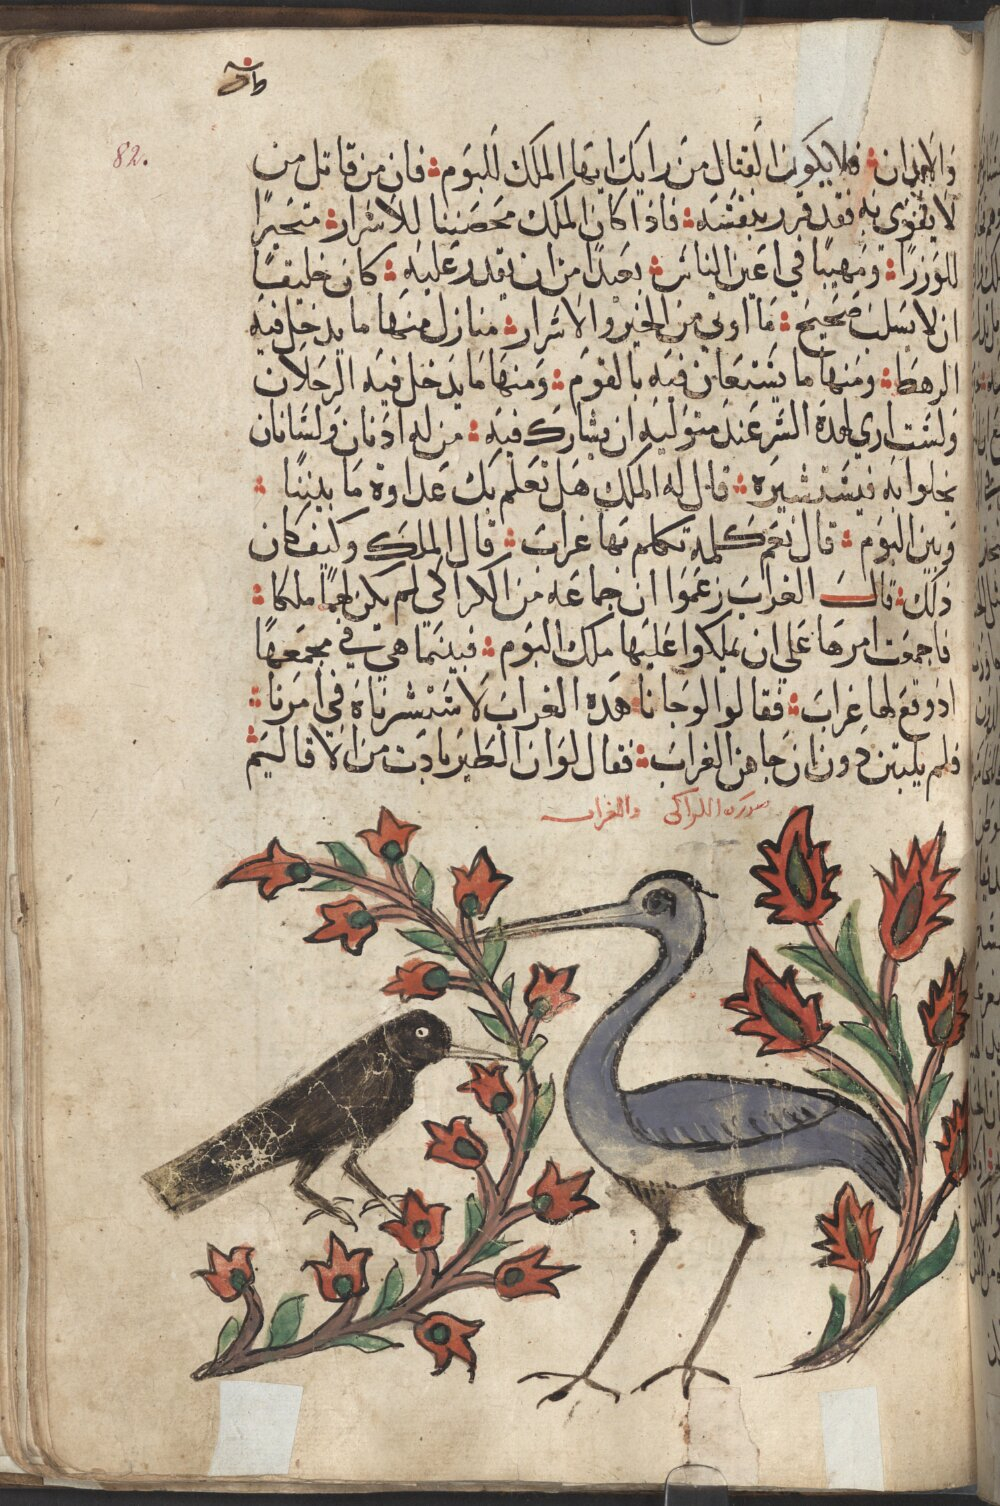 82.
والابدان فلا يكونن القتال من رايك ايها الملك للبوم فان من قاتل من
لا يقوى به فقد غرر بنفسه فاذا كان الملك محصننا للاسرار متخيرًا
للوزرا ومهيبًا في اعين الناس بعيدًا من ان يقدر عليه كان خليقًا
ان لا يسلب صحيح ما اوتي من الخير والاسرار منازل منها ما يدخل فيه
الرهط ومنها ما يستعان فيه بالقوم ومنها ما يدخل فيه الرجلان
ولست اري لهذة السر عند متوليه ان يشارك فيه من له اذنان ولسانان
يخلوا به فيستشيره قال له الملك هل تعلم بك عداوة ما بيننا
وبين البوم قال نعم كلمة تكلم بها غراب قال الملك وكيف كان
ذلك قالت الغراب زعموا ان جماعه من الكراكي لم يكن لهما ملكا
فاجمعت امرها علي ان يملكوا عليها ملك البوم فبينما هي في مجمعها
اذ وقع لها غراب فقالوا لو جانا هذه الغراب لاستشرناه في امرنا
فلم يلبثن دون ان جاهن الغراب فقال لو ان الطير بادت من الاقاليم
صورة الكراكي والغراب